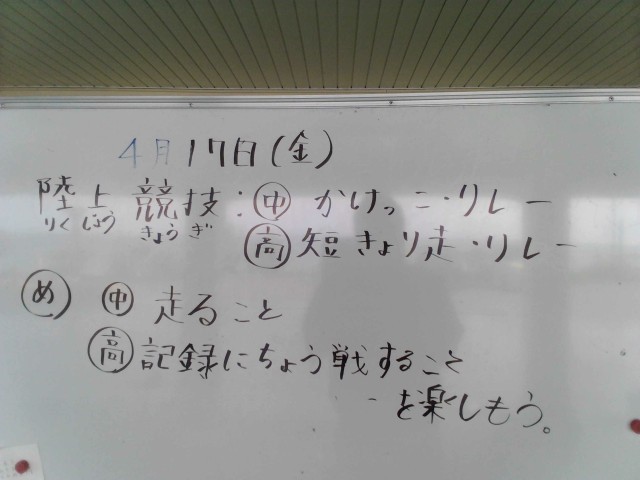 4月17日(金)
陸上競技:㊥かけっこ・リレー
りくじょうきょうぎ
高短きょり走・リレー
め 中 走ること
高 記録にちょう戦すること
を楽しもう。